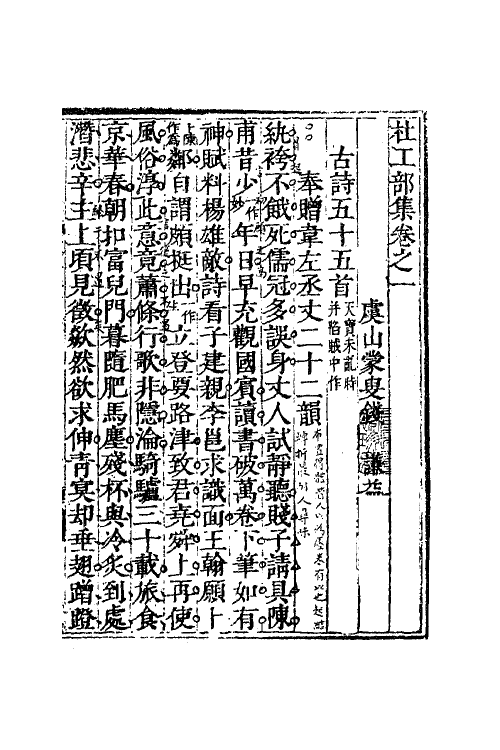 杜工部集卷之一
虞山蒙叟錢謙益
古詩五十五首 天寶未亂時
并陷賊中作
奉贈韋左丞丈二十二韻
紈袴不餓死儒冠多誤身丈人試靜聽賤子請具陳
甫昔少年日早充觀國賓讀書破萬卷下筆如有
神賦料楊雄敵詩看子建親李邕求識面王翰願卜
鄰自謂頗挺出立登要路津致君堯舜上再使
風俗淳此意竟蕭條行歌非隱淪騎驢三十載旅食
京華春朝扣富兒門暮隨肥馬塵殘杯與冷炙到處
潛悲辛主上頃見徵歘然欲求伸青冥却垂翅蹭蹬